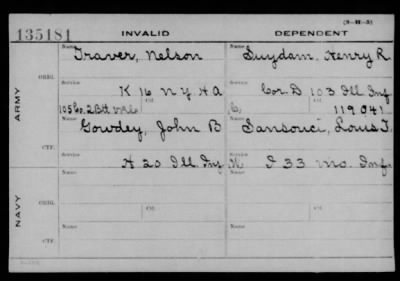 (3-H-3)
135181 INVALID DEPENDENT
Name Name
Traver, Nelson Suydam, Henry R.
ORIG. Service Service
K 16 N Y H A Co. D 103 Ill Inf
105 Co. 2 Batt V R C Ctf. C. Ctf. 119041
ARMY
Name Name
Gowdey, John B Sansouci, Louis T.
CTF. Service Service
A 20 Ill. Inf K I 33 Mo. Inf.
Name Name
ORIG. Service Service
Ctf. Ctf.
NAVY
Name Name
CTF. Service Service